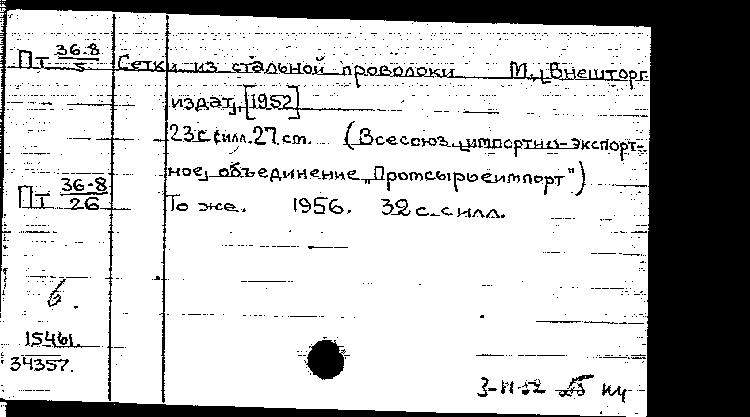 Пт 36.8/5 Сетки из стальной проволоки М., Внешторг
издат, [1952]
23 с. с илл. 27 см. (Всесоюз. импортно-экспорт-
ное, объединение „Промсырьеимпорт")
Пт 36.8/26 То же. 1956. 32 с. с илл.
6.
15461.
34357.
3-11-52